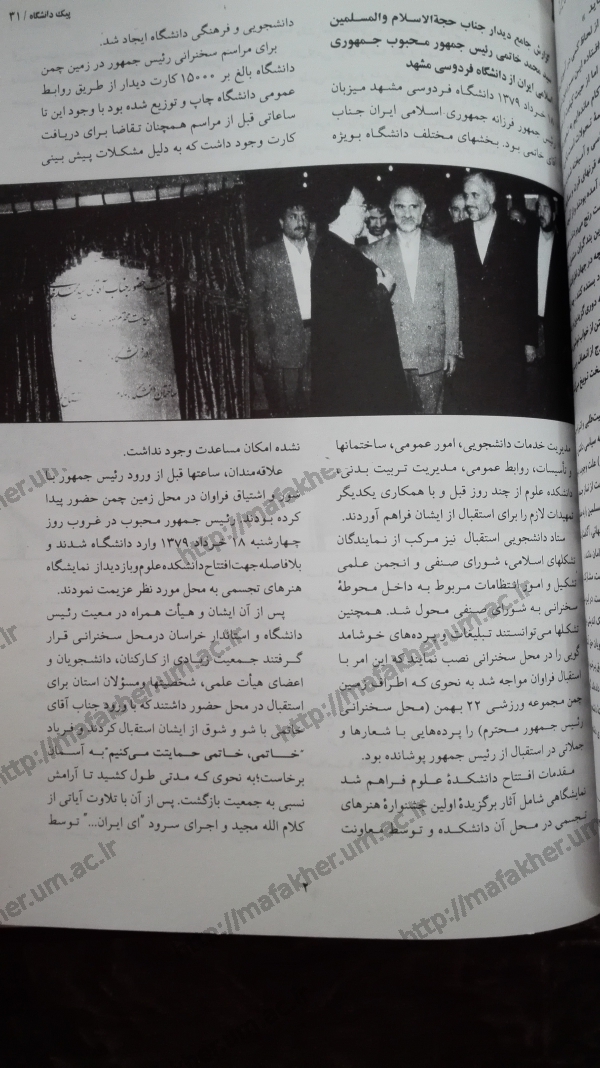 پیک دانشگاه / ۳۱
گزارش جامع دیدار جناب حجةالاسلام والمسلمین
سید محمد خاتمی رئیس جمهور محبوب جمهوری
اسلامی ایران از دانشگاه فردوسی مشهد
خرداد ۱۳۷۹ دانشگاه فردوسی مشهد میزبان
رئیس جمهور فرزانه جمهوری اسلامی ایران جناب
آقای خاتمی بود. بخشهای مختلف دانشگاه بویژه
مدیریت خدمات دانشجویی، امور عمومی، ساختمانها
و تأسیسات، روابط عمومی، مدیریت تربیت بدنی،
دانشکده علوم از چند روز قبل و با همکاری یکدیگر
تمهیدات لازم را برای استقبال از ایشان فراهم آوردند.
ستاد دانشجویی استقبال نیز مرکب از نمایندگان
تشکلهای اسلامی، شورای صنفی و انجمن علمی
تشکیل و امور انتظامات مربوط به داخل محوطهٔ
سخنرانی به شورای صنفی محول شد. همچنین
تشکلها می‌توانستند تبلیغات و پرده‌های خوشامد
گویی را در محل سخنرانی نصب نمایند که این امر با
استقبال فراوان مواجه شد به نحوی که اطراف زمین
چمن مجموعه ورزشی ۲۲ بهمن (محل سخنرانی
رئیس جمهور محترم) را پرده‌هایی با شعارها و
جملاتی در استقبال از رئیس جمهور پوشانده بود.
مقدمات افتتاح دانشکدهٔ علوم فراهم شد
نمایشگاهی شامل آثار برگزیدهٔ اولین جشنوارهٔ هنرهای
تجسمی در محل آن دانشکده و توسط معاونت
دانشجویی و فرهنگی دانشگاه ایجاد شد.
برای مراسم سخنرانی رئیس جمهور در زمین چمن
دانشگاه بالغ بر ۱۵۰۰۰ کارت دیدار از طریق روابط
عمومی دانشگاه چاپ و توزیع شده بود با وجود این تا
ساعاتی قبل از مراسم همچنان تقاضا برای دریافت
کارت وجود داشت که به دلیل مشکلات پیش بینی
نشده امکان مساعدت وجود نداشت.
علاقه‌مندان، ساعتها قبل از ورود رئیس جمهور با
شور و اشتیاق فراوان در محل زمین چمن حضور پیدا
کرده بودند. رئیس جمهور محبوب در غروب روز
چهارشنبه ۱۸ خرداد ۱۳۷۹ وارد دانشگاه شدند و
بلافاصله جهت افتتاح دانشکده علوم و بازدید از نمایشگاه
هنرهای تجسمی به محل مورد نظر عزیمت نمودند.
پس از آن ایشان و هیأت همراه در معیت رئیس
دانشگاه و استاندار خراسان درمحل سخنرانی قرار
گرفتند جمعیت زیادی از کارکنان، دانشجویان و
اعضای هیأت علمی، شخصیتها ومسؤلان استان برای
استقبال در محل حضور داشتند که با ورود جناب آقای
خاتمی با شو و شوق از ایشان استقبال کردند و فریاد
"خاتمی، خاتمی حمایتت می‌کنیم" به آسمان
برخاست؛به نحوی که مدتی طول کشید تا آرامش
نسبی به جمعیت بازگشت. پس از آن با تلاوت آیاتی از
کلام الله مجید و اجرای سرود "ای ایران..." توسط
۲
http://mafakher.um.ac.ir